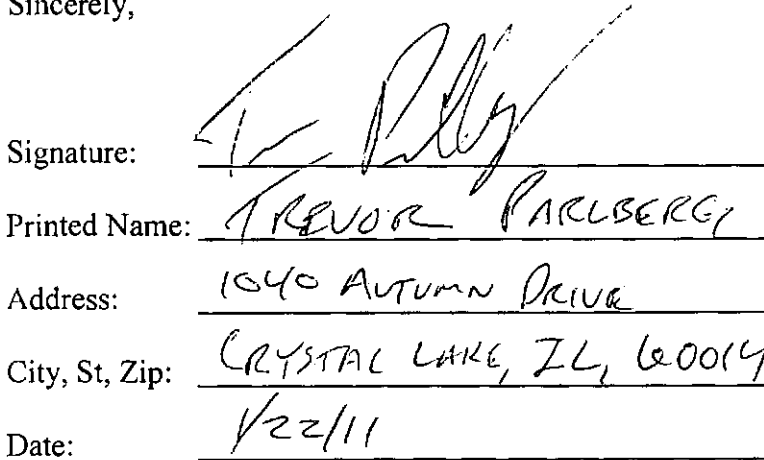 Sincerely,
Signature:
Printed Name: TREVOR PARLBERG
Address: 1040 AUTUMN DRIVE
City, St, Zip: CRYSTAL LAKE, IL, 60014
Date: 1/22/11